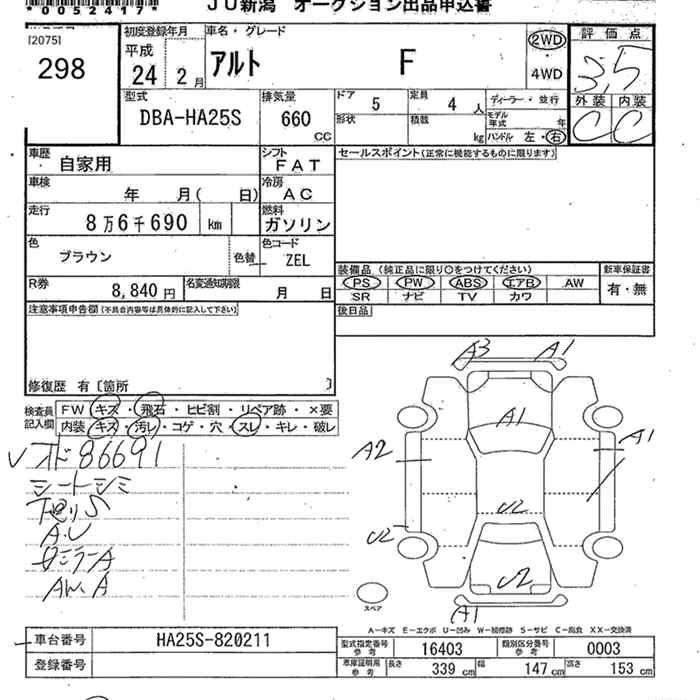 *00524177*
JU新潟 オークション出品申込書
[2075]
298
初度登録年月
平成
24年 2月
車名・グレード
アルト F
2WD
・
4WD
評価点
3.5
外装 内装
C C
型式
DBA-HA25S
排気量
660
CC
ドア 5
定員 4 人
形状
積載 kg
ディーラー・並行
モデル年式 年
ハンドル 左・右
車歴
自家用
シフト
FAT
セールスポイント(正常に機能するものに限ります)
車検 年 月( 日)
冷房
AC
走行
8万6千690 km
燃料
ガソリン
色
ブラウン
色替
色コード
ZEL
R券
8,840 円
名変通知期限
月 日
装備品 (純正品に限り○をつけてください)
PS PW ABS エアB AW
SR ナビ TV カワ
新車保証書
有・無
後日品
注意事項申告欄(不具合内容等は具体的に記入して下さい)
修復歴 有 [箇所 ]
検査員
記入欄
FW キズ・飛石・ヒビ割・リペア跡・×要
内装 キズ・汚レ・コゲ・穴・スレ・キレ・破レ
✓オド86691
シートシミ
下廻りS
A.U
AW.A
A3 A1
A1
A2 A1
U2
U2
U2
A1
スペア
A-キズ E-エクボ U-凹み W-補修跡 S-サビ C-腐食 XX-交換済
車台番号 HA25S-820211
登録番号
型式指定番号
参考
16403
類別区分番号
参考
0003
車庫証明用
参考
長さ 339 cm 幅 147 cm 高さ 153 cm